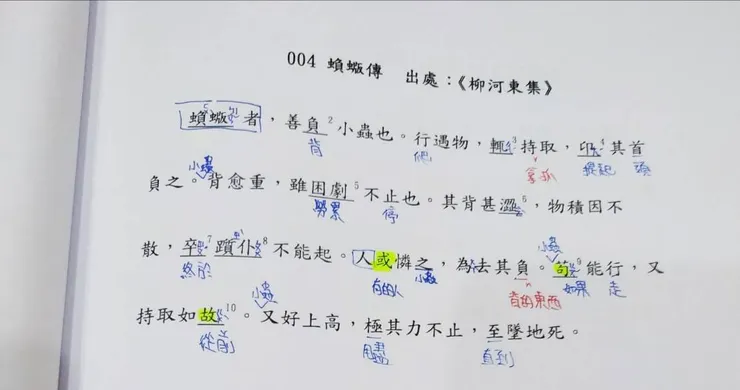 004 蝜蝂傳 出處：《柳河東集》
蝜蝂者，善負2小蟲也。行遇物，輒3持取，卬4其首
背 拿、抓 提起 頭
小蟲
負之。背愈重，雖困劇5不止也。其背甚澀6，物積因不
勞累 停
小蟲
散，卒7躓仆8不能起。人或憐之，為去其負。苟9能行，又
終於 有的人 小蟲 背的東西 如果 走
小蟲
持取如故10。又好上高，極其力不止，至墜地死。
從前 用盡 直到